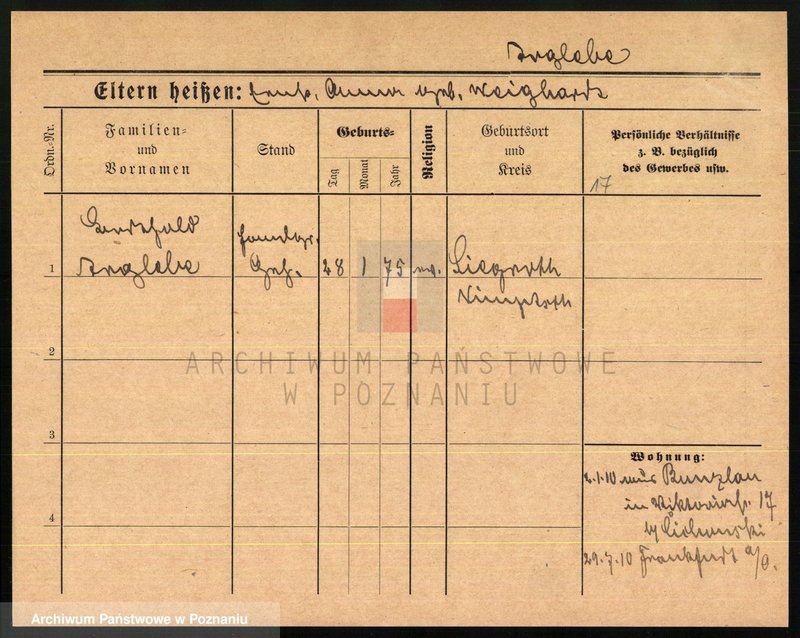 Irglebe
Eltern heißen: Ernst, Anna geb. Weighardt
Ordn.-Nr.
Familien-
und
Vornamen
Stand
Geburts-
Tag
Monat
Jahr
Religion
Geburtsort
und
Kreis
Persönliche Verhältnisse
z. B. bezüglich
des Gewerbes usw.
17
Berthold
Irglebe
Handlgs.
Geh.
28
1
75
ev.
Siegroth
Nimptsch
1
2
3
4
Wohnung:
2.1.10 aus Bunzlau
in Viktoriastr. 17
b/ Cichanski
29.7.10 Frankfurt a/O.
ARCHIWUM PAŃSTWOWE
W POZNANIU
Archiwum Państwowe w Poznaniu